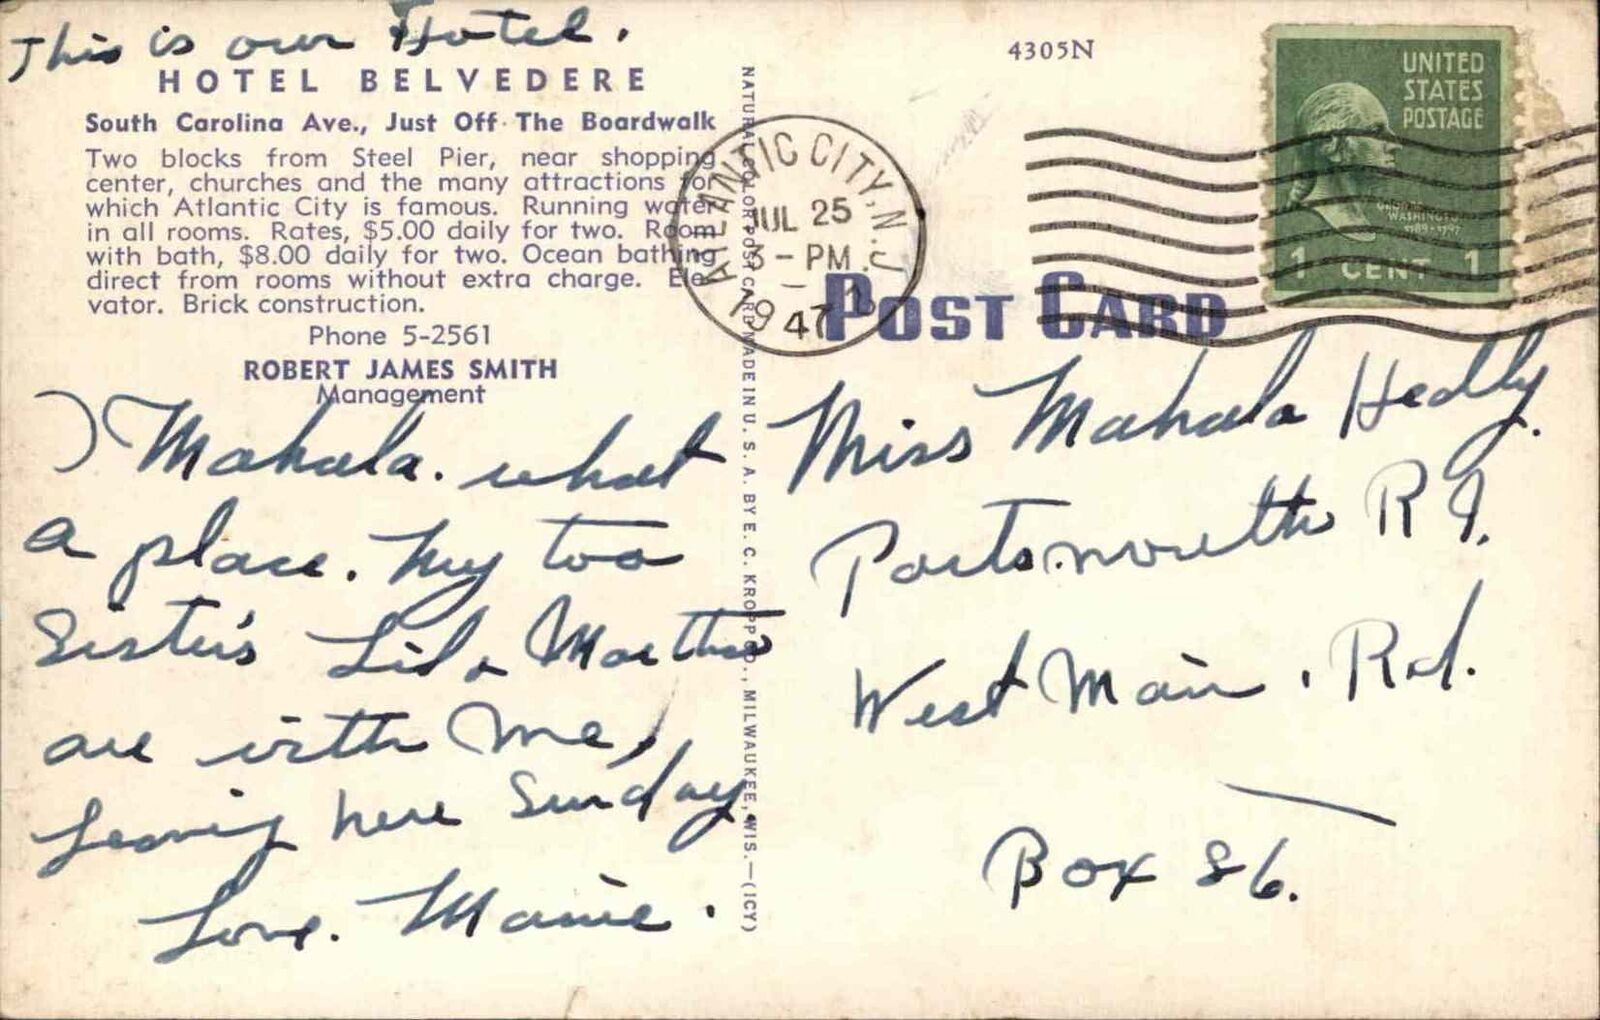 This is our Hotel.
HOTEL BELVEDERE
South Carolina Ave., Just Off The Boardwalk
Two blocks from Steel Pier, near shopping
center, churches and the many attractions for
which Atlantic City is famous. Running water
in all rooms. Rates, $5.00 daily for two. Room
with bath, $8.00 daily for two. Ocean bathing
direct from rooms without extra charge. Ele-
vator. Brick construction.
Phone 5-2561
ROBERT JAMES SMITH
Management
Mahala. what
a place. My too
Sister's Lil & Martha
are with me,
Leaving here Sunday
Love. Mamie.
NATURAL COLOR POST CARD MADE IN U. S. A. BY E. C. KROPP CO., MILWAUKEE, WIS.—(ICY)
4305N
ATLANTIC CITY, N.J.
JUL 25
3-PM
1947
POST CARD
UNITED
STATES
POSTAGE
GEORGE
WASHINGTON
1789-1797
1 CENT 1
Miss Mahala Hedly.
Portsmouth R I.
West Main. Rd.
Box 86.